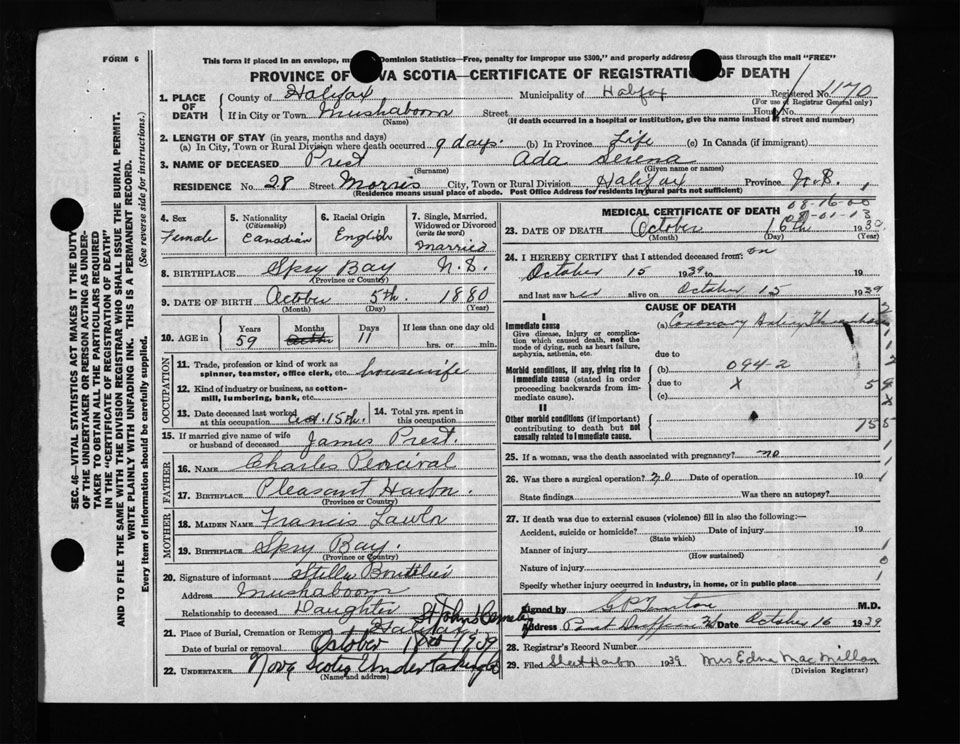 FORM 6
This form if placed in an envelope, Dominion Statistics—Free, penalty for improper use $300," and properly address through the mail "FREE"
PROVINCE OF VA SCOTIA—CERTIFICATE OF REGISTRATI OF DEATH
1. PLACE OF DEATH County of Halifax Municipality of Halifax Registered No. 1170
(For use of Registrar General only)
If in City or Town Mushaboom Street Hou No.
(Name) (If death occurred in a hospital or institution, give the name instead of street and number)
2. LENGTH OF STAY (in years, months and days)
(a) In City, Town or Rural Division where death occurred 9 days. (b) In Province Life (c) In Canada (if immigrant)
3. NAME OF DECEASED Prest Ada Serena
(Surname) (Given name or names)
RESIDENCE No. 28 Street Morris City, Town or Rural Division Halifax Province N.S.
(Residence means usual place of abode. Post Office Address for residents in rural parts not sufficient)
4. Sex Female
5. Nationality (Citizenship) Canadian
6. Racial Origin English
7. Single, Married, Widowed or Divorced (write the word) Married
8. BIRTHPLACE Spry Bay N.S.
(Province or Country)
9. DATE OF BIRTH October 5th. 1880
(Month) (Day) (Year)
10. AGE in Years 59 Months Days 11 If less than one day
hrs. or min.
OCCUPATION
11. Trade, profession or kind of work as spinner, teamster, office clerk, etc. housewife
12. Kind of industry or business, as cotton-mill, lumbering, bank, etc.
13. Date deceased last worked at this occupation Oct. 15th.
14. Total yrs. spent in this occupation
15. If married give name of wife or husband of deceased James Prest.
FATHER
16. NAME Charles Percival
17. BIRTHPLACE Pleasant Harbor.
(Province or Country)
MOTHER
18. MAIDEN NAME Francis Lawlor
19. BIRTHPLACE Spry Bay.
(Province or Country)
20. Signature of informant Stella Boutilier
Address Mushaboom
Relationship to deceased Daughter
21. Place of Burial, Cremation or Removal St Johns Cemetery Halifax
Date of burial or removal October 18th 1939
22. UNDERTAKER Nova Scotia Undertaking Co
(Name and address)
MEDICAL CERTIFICATE OF DEATH
08-16-00
01-13
23. DATE OF DEATH October 16th 1939
(Month) (Day) (Year)
24. I HEREBY CERTIFY that I attended deceased from: on
October 15 1939 to 19
and last saw her alive on October 15 1939
CAUSE OF DEATH
I
Immediate cause
Give disease, injury or complication which caused death, not the mode of dying, such as heart failure, asphyxia, asthenia, etc.
(a) Coronary
due to
Morbid conditions, if any, giving rise to immediate cause (stated in order proceeding backwards from immediate).
(b) 094-2
due to X
(c)
II
Other morbid conditions (if important) contributing to death but not causally related to immediate cause.
25. If a woman, was the death associated with pregnancy? no
26. Was there a surgical operation? no Date of operation 19
State findings Was there an autopsy?
27. If death was due to external causes (violence) fill in also the following:—
Accident, suicide or homicide? Date of injury 19
(State which)
Manner of injury
(How sustained)
Nature of injury
Specify whether injury occurred in industry, in home, or in public place
Signed by M.D.
Address Port Dufferin Date October 16 1939
28. Registrar's Record Number
29. Filed Sheet Harbor 1939 Mrs Edna MacMillan
(Division Registrar)
SEC. 46—VITAL STATISTICS ACT MAKES IT THE DUTY
OF THE UNDERTAKER OR PERSON ACTING AS UNDER-
TAKER TO OBTAIN ALL THE PARTICULARS REQUIRED
IN THE "CERTIFICATE OF REGISTRATION OF DEATH"
AND TO FILE THE SAME WITH THE DIVISION REGISTRAR WHO SHALL ISSUE THE BURIAL PERMIT.
WRITE PLAINLY WITH UNFADING INK. THIS IS A PERMANENT RECORD.
Every item of Information should be carefully supplied. (See reverse side for instructions.)